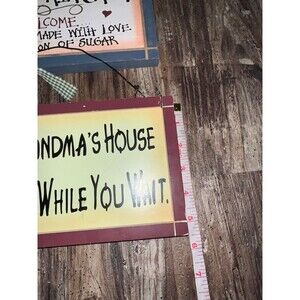 LCOME
MADE WITH LOVE
ON OF SUGAR
NDMA'S HOUSE
WHILE YOU WAIT.